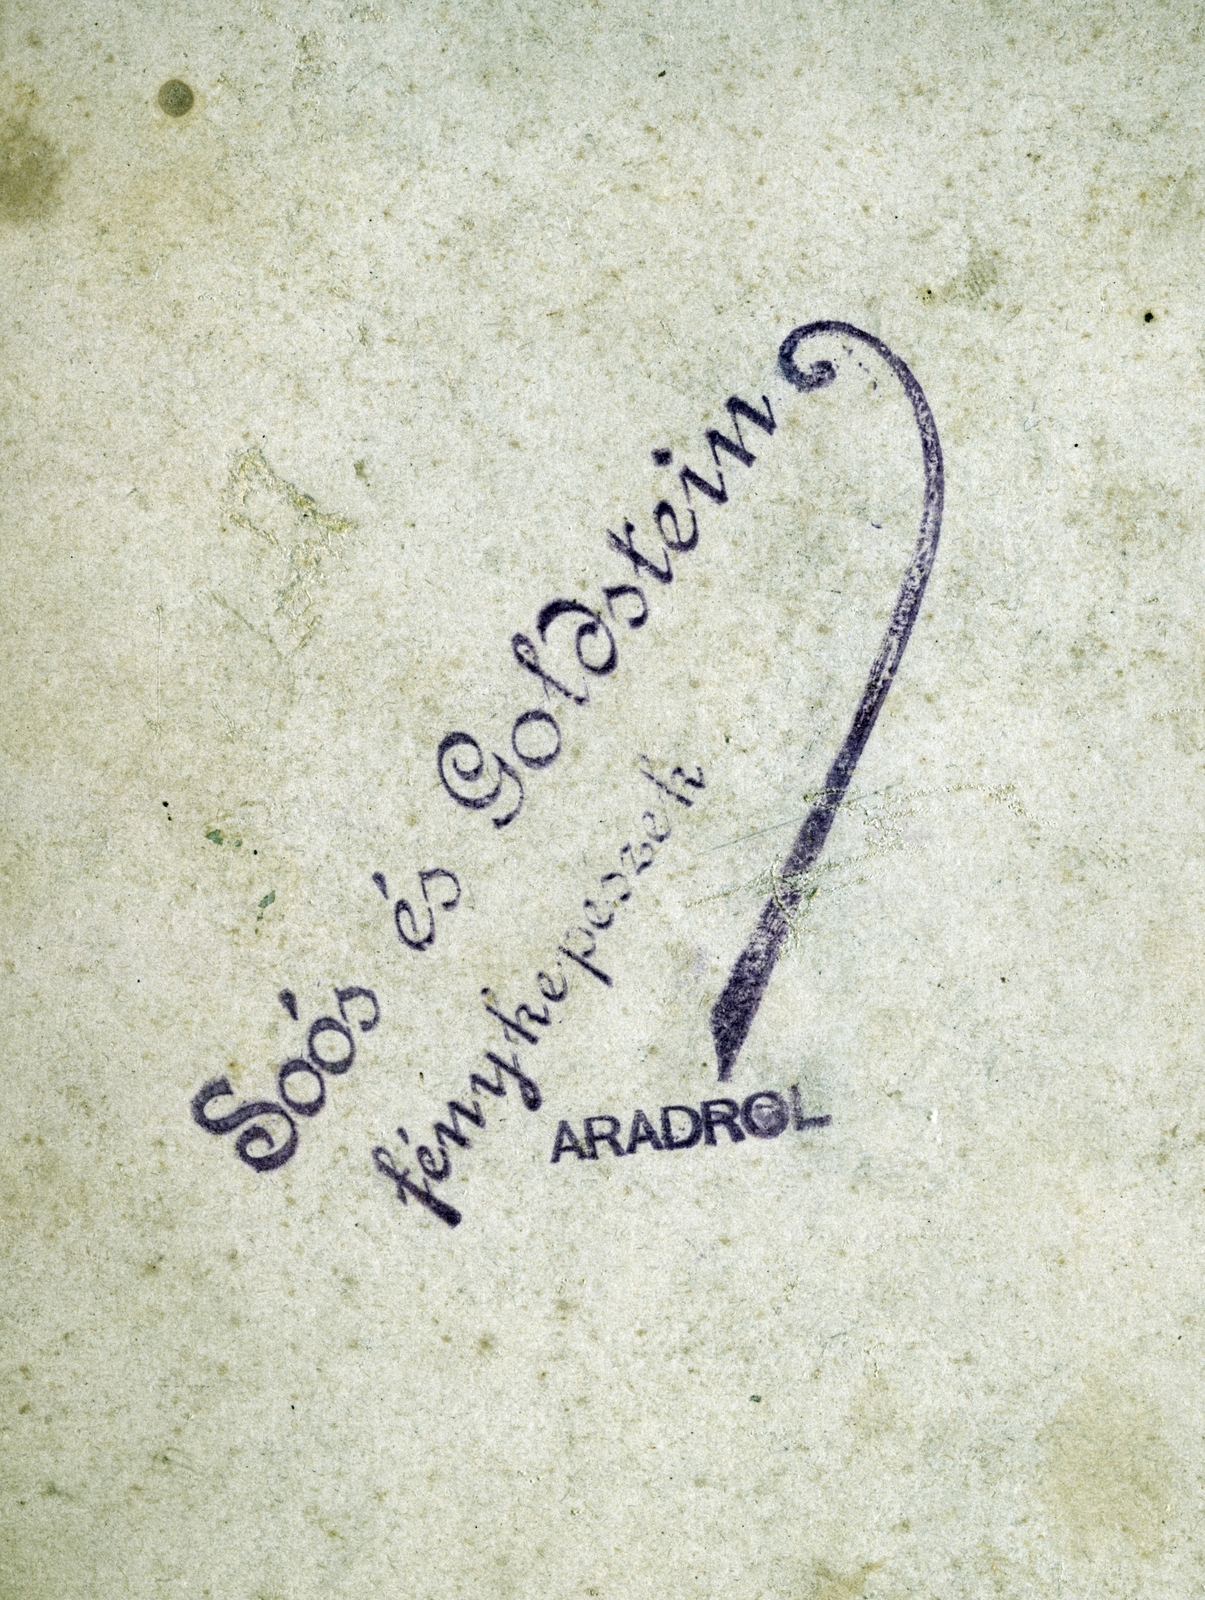 Soós és Goldstein
fénykepeszek
ARADROL